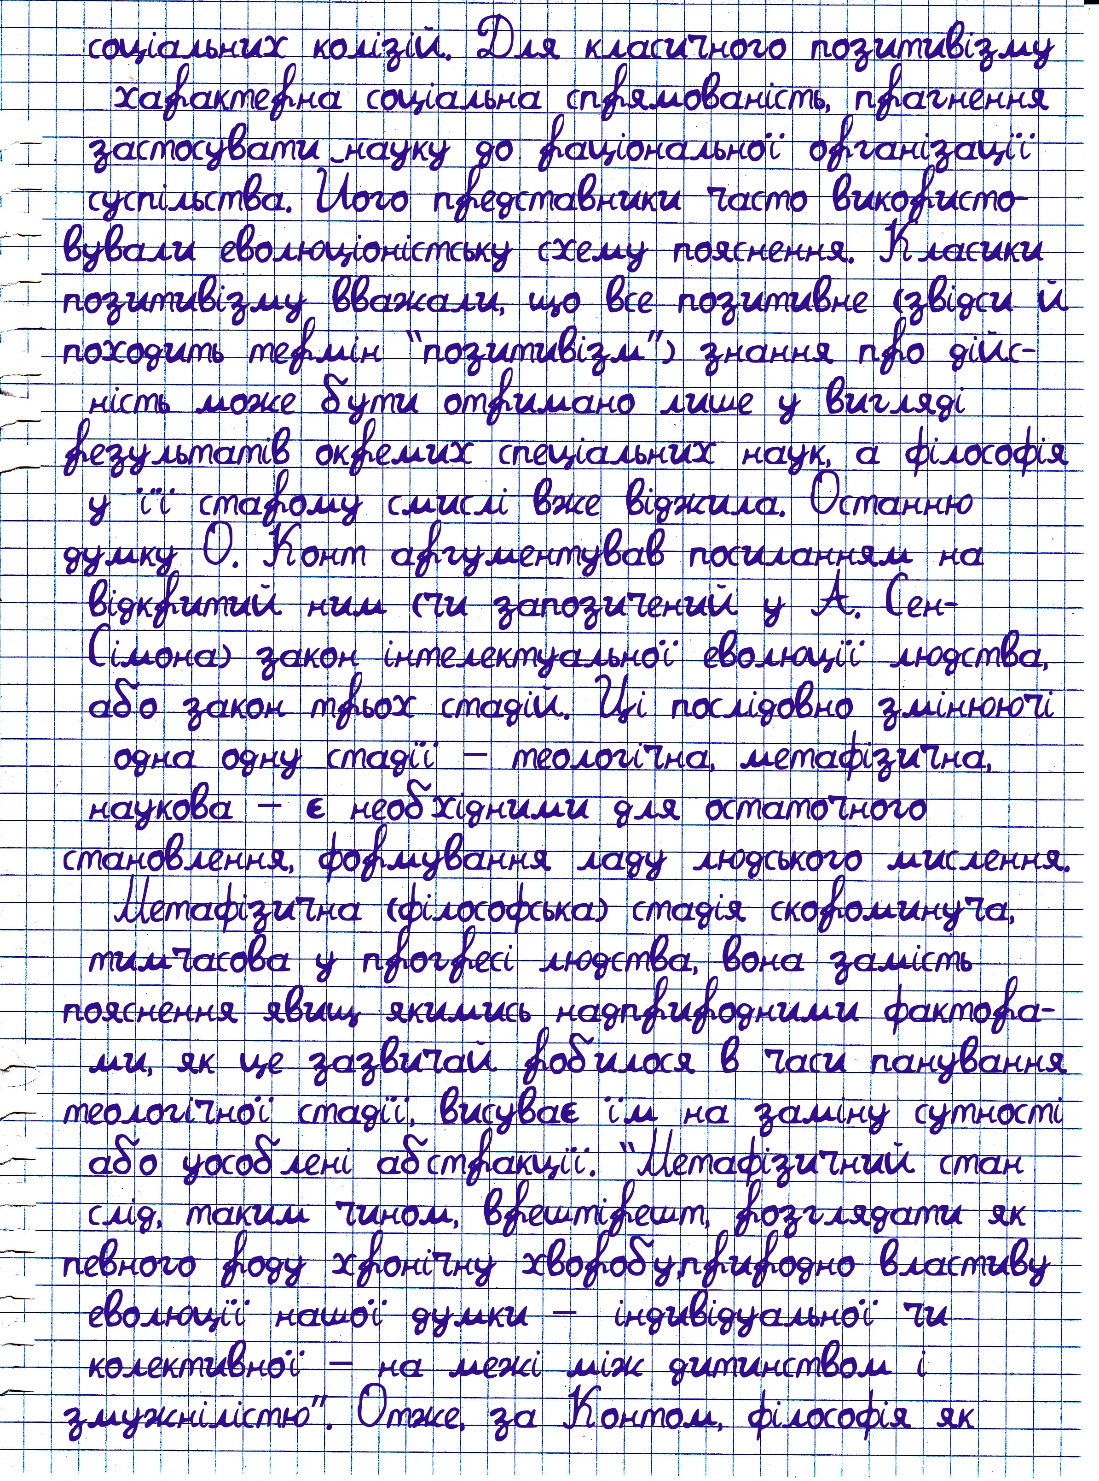 соціальних колізій. Для класичного позитивізму
характерна соціальна спрямованість, прагнення
застосувати науку до раціональної організації
суспільства. Його представники часто використо-
вували еволюціоністську схему пояснення. Класики
позитивізму вважали, що все позитивне (звідси й
походить термін "позитивізм") знання про дійс-
ність може бути отримано лише у вигляді
результатів окремих спеціальних наук, а філософія
у її старому смислі вже віджила. Останню
думку О. Конт аргументував посиланням на
відкритий ним (чи запозичений у А. Сен-
Сімона) закон інтелектуальної еволюції людства,
або закон трьох стадій. Ці послідовно змінюючі
одна одну стадії – теологічна, метафізична,
наукова – є необхідними для остаточного
становлення, формування ладу людського мислення.
Метафізична (філософська) стадія скороминуча,
тимчасова у прогресі людства, вона замість
пояснення явищ якимись надприродними фактора-
ми, як це зазвичай робилося в часи панування
теологічної стадії, висуває їм на заміну сутності
або уособлені абстракції. "Метафізичний стан
слід, таким чином, врештірешт, розглядати як
певного роду хронічну хворобу,природно властиву
еволюції нашої думки – індивідуальної чи
колективної – на межі між дитинством і
змужнілістю". Отже, за Контом, філософія як